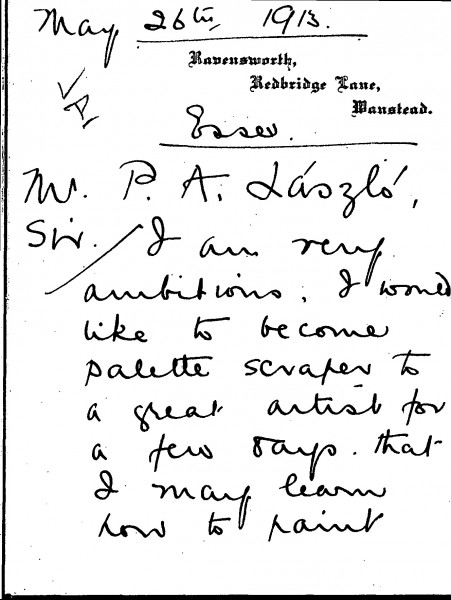 May 26th, 1913.
Ravensworth,
Redbridge Lane,
Wanstead.
Essex.
Mr. P. A. László,
Sir. I am very
ambitious. I would
like to become
palette scraper to
a great artist for
a few days. that
I may learn
how to paint